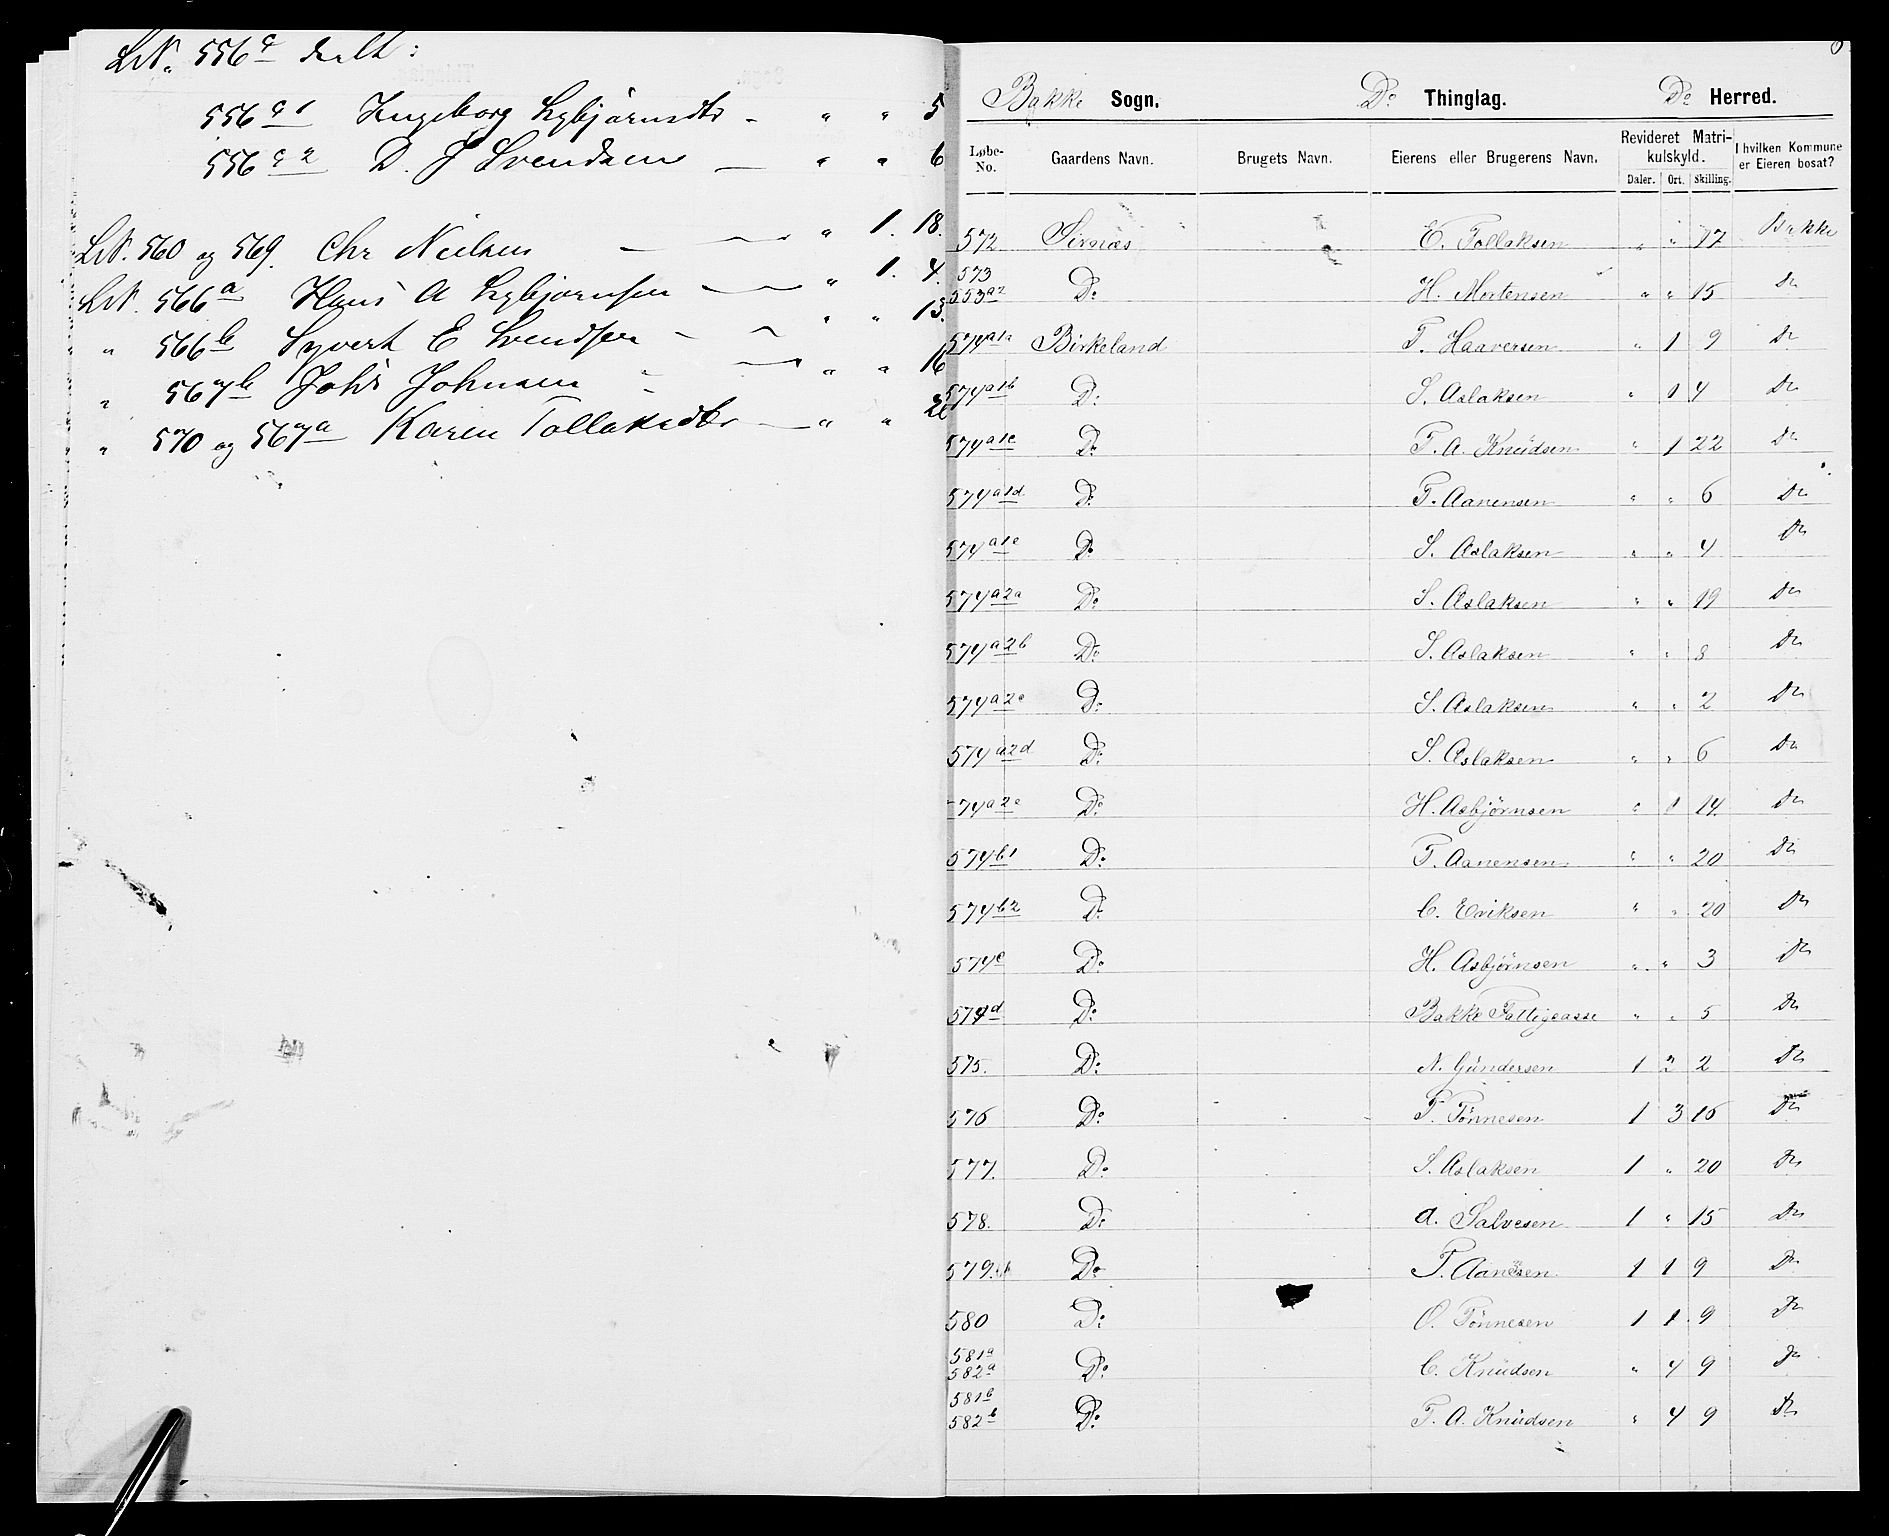 LN. 556c delt:
556c1 Ingeborg Esbjörnsdtr - " " 5
556c2 D. J Svendsen — " " 6
LN. 560 og 569. Chr Nielsen — " 1. 18.
LN. 566a Hans A Esbjörnsen — " 1. 4.
" 566b Syvert E Svendsen - " " 13.
" 567b Johs Johnsen - " " 16
" 570 og 567a Karen Tollaksdtr — " "
Bakke Sogn. Do Thinglag. Do Herred.
Løbe-No. Gaardens Navn. Brugets Navn. Eierens eller Brugerens Navn. Revideret Matrikulskyld. I hvilken Kommune er Eieren bosat?
Daler. Ort. Skilling.
572 Sirnæs E. Tollaksen " " 17 Bakke
573 553a2 Do H. Mortensen " " 15 Do
574a1a Birkeland T. Haaversen " 1 9 Do
574a1b Do S. Aslaksen " 1 4 Do
574a1c Do T. A. Knudsen " 1 22 Do
574a1d Do T. Aanensen " " 6 Do
574a1e Do S. Aslaksen " " 4 Do
574a2a Do S. Aslaksen " " 19 Do
574a2b Do S. Aslaksen " " 8 Do
574a2c Do S. Aslaksen " " 2 Do
574a2d Do S. Aslaksen " " 6 Do
574a2e Do H. Asbjörnsen " 1 14 Do
574b1 Do T. Aanensen " " 20 Do
574b2 Do C. Eriksen " " 20 Do
574c Do H. Asbjörnsen " " 3 Do
574d Do Bakke Fattigcasse " " 5 Do
575. Do N. Gundersen 1 2 2 Do
576 Do T. Tönnesen 1 3 16 Do
577. Do S. Aslaksen 1 " 20 Do
578. Do A. Salvesen 1 " 15 Do
579. Do T. Aanesen 1 1 9 Do
580 Do O. Tönnesen 1 1 9 Do
581a 582a Do C. Knudsen " 4 9 Do
581b 582b Do T. A. Knudsen " 4 9 Do